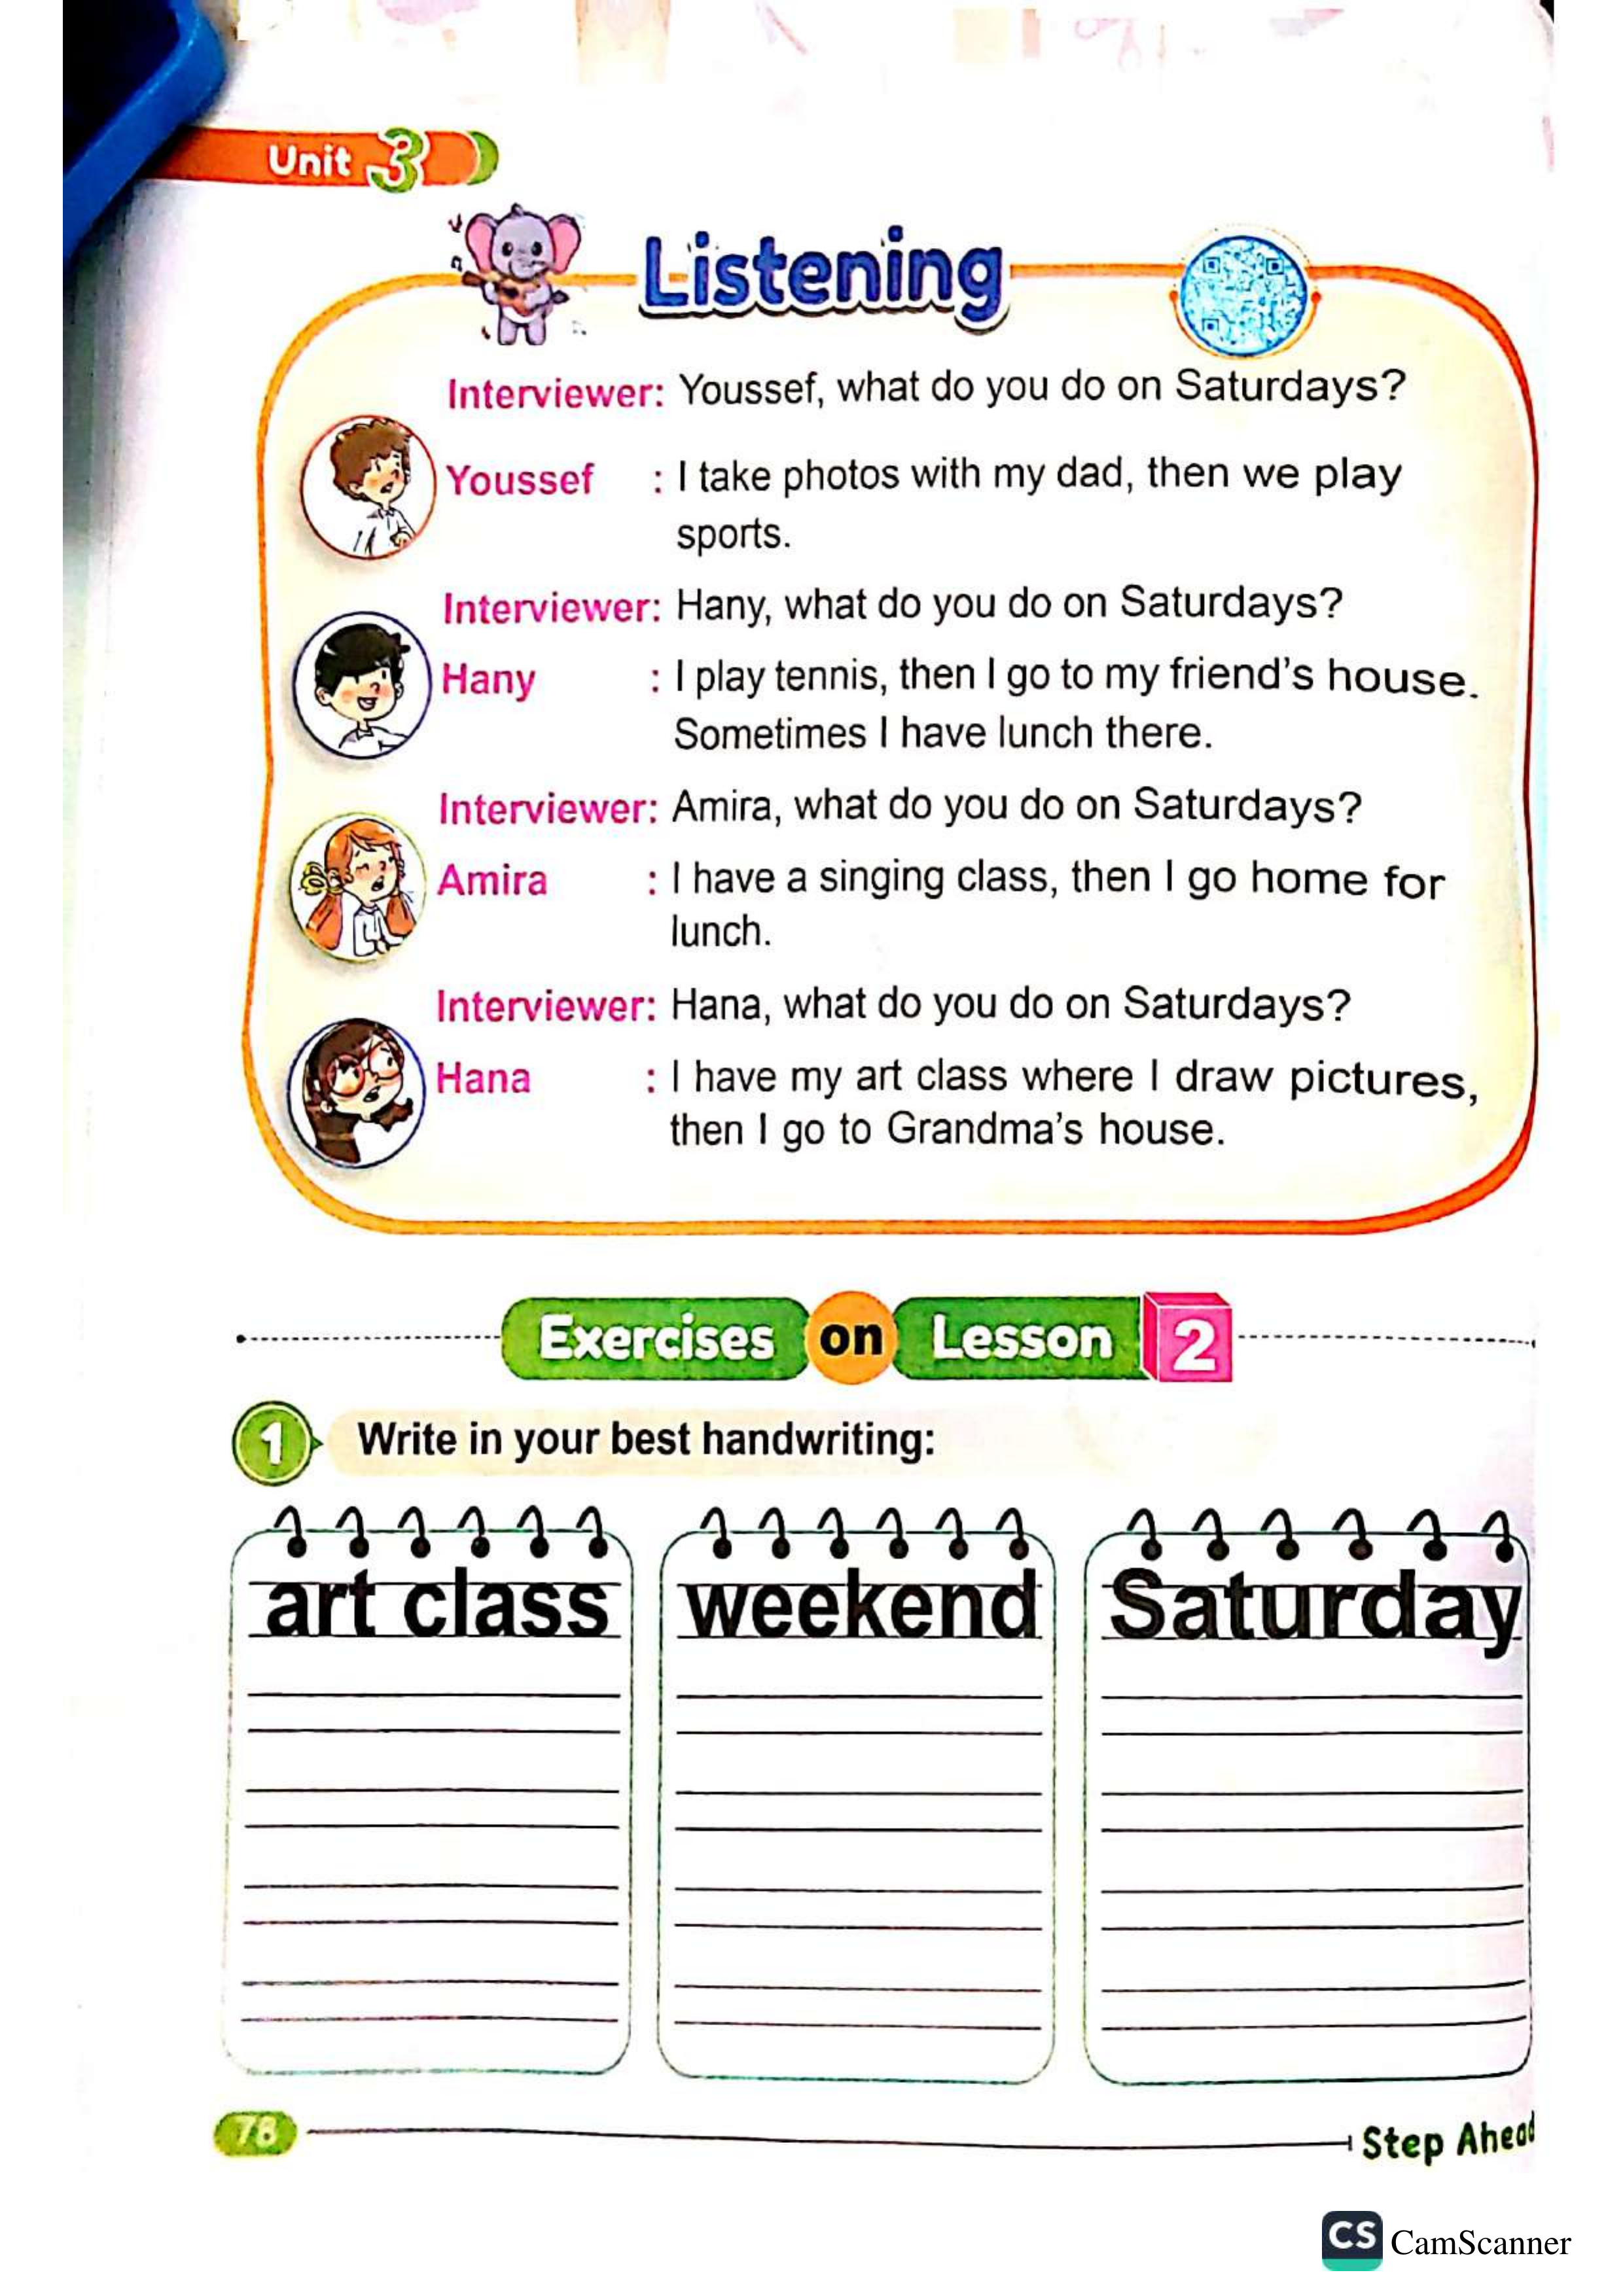 Unit 3
Listening
Interviewer: Youssef, what do you do on Saturdays?
Youssef : I take photos with my dad, then we play
sports.
Interviewer: Hany, what do you do on Saturdays?
Hany : I play tennis, then I go to my friend's house.
Sometimes I have lunch there.
Interviewer: Amira, what do you do on Saturdays?
Amira : I have a singing class, then I go home for
lunch.
Interviewer: Hana, what do you do on Saturdays?
Hana : I have my art class where I draw pictures,
then I go to Grandma's house.
Exercises on Lesson 2
1 Write in your best handwriting:
art class weekend Saturday
78 Step Ahead
CS CamScanner